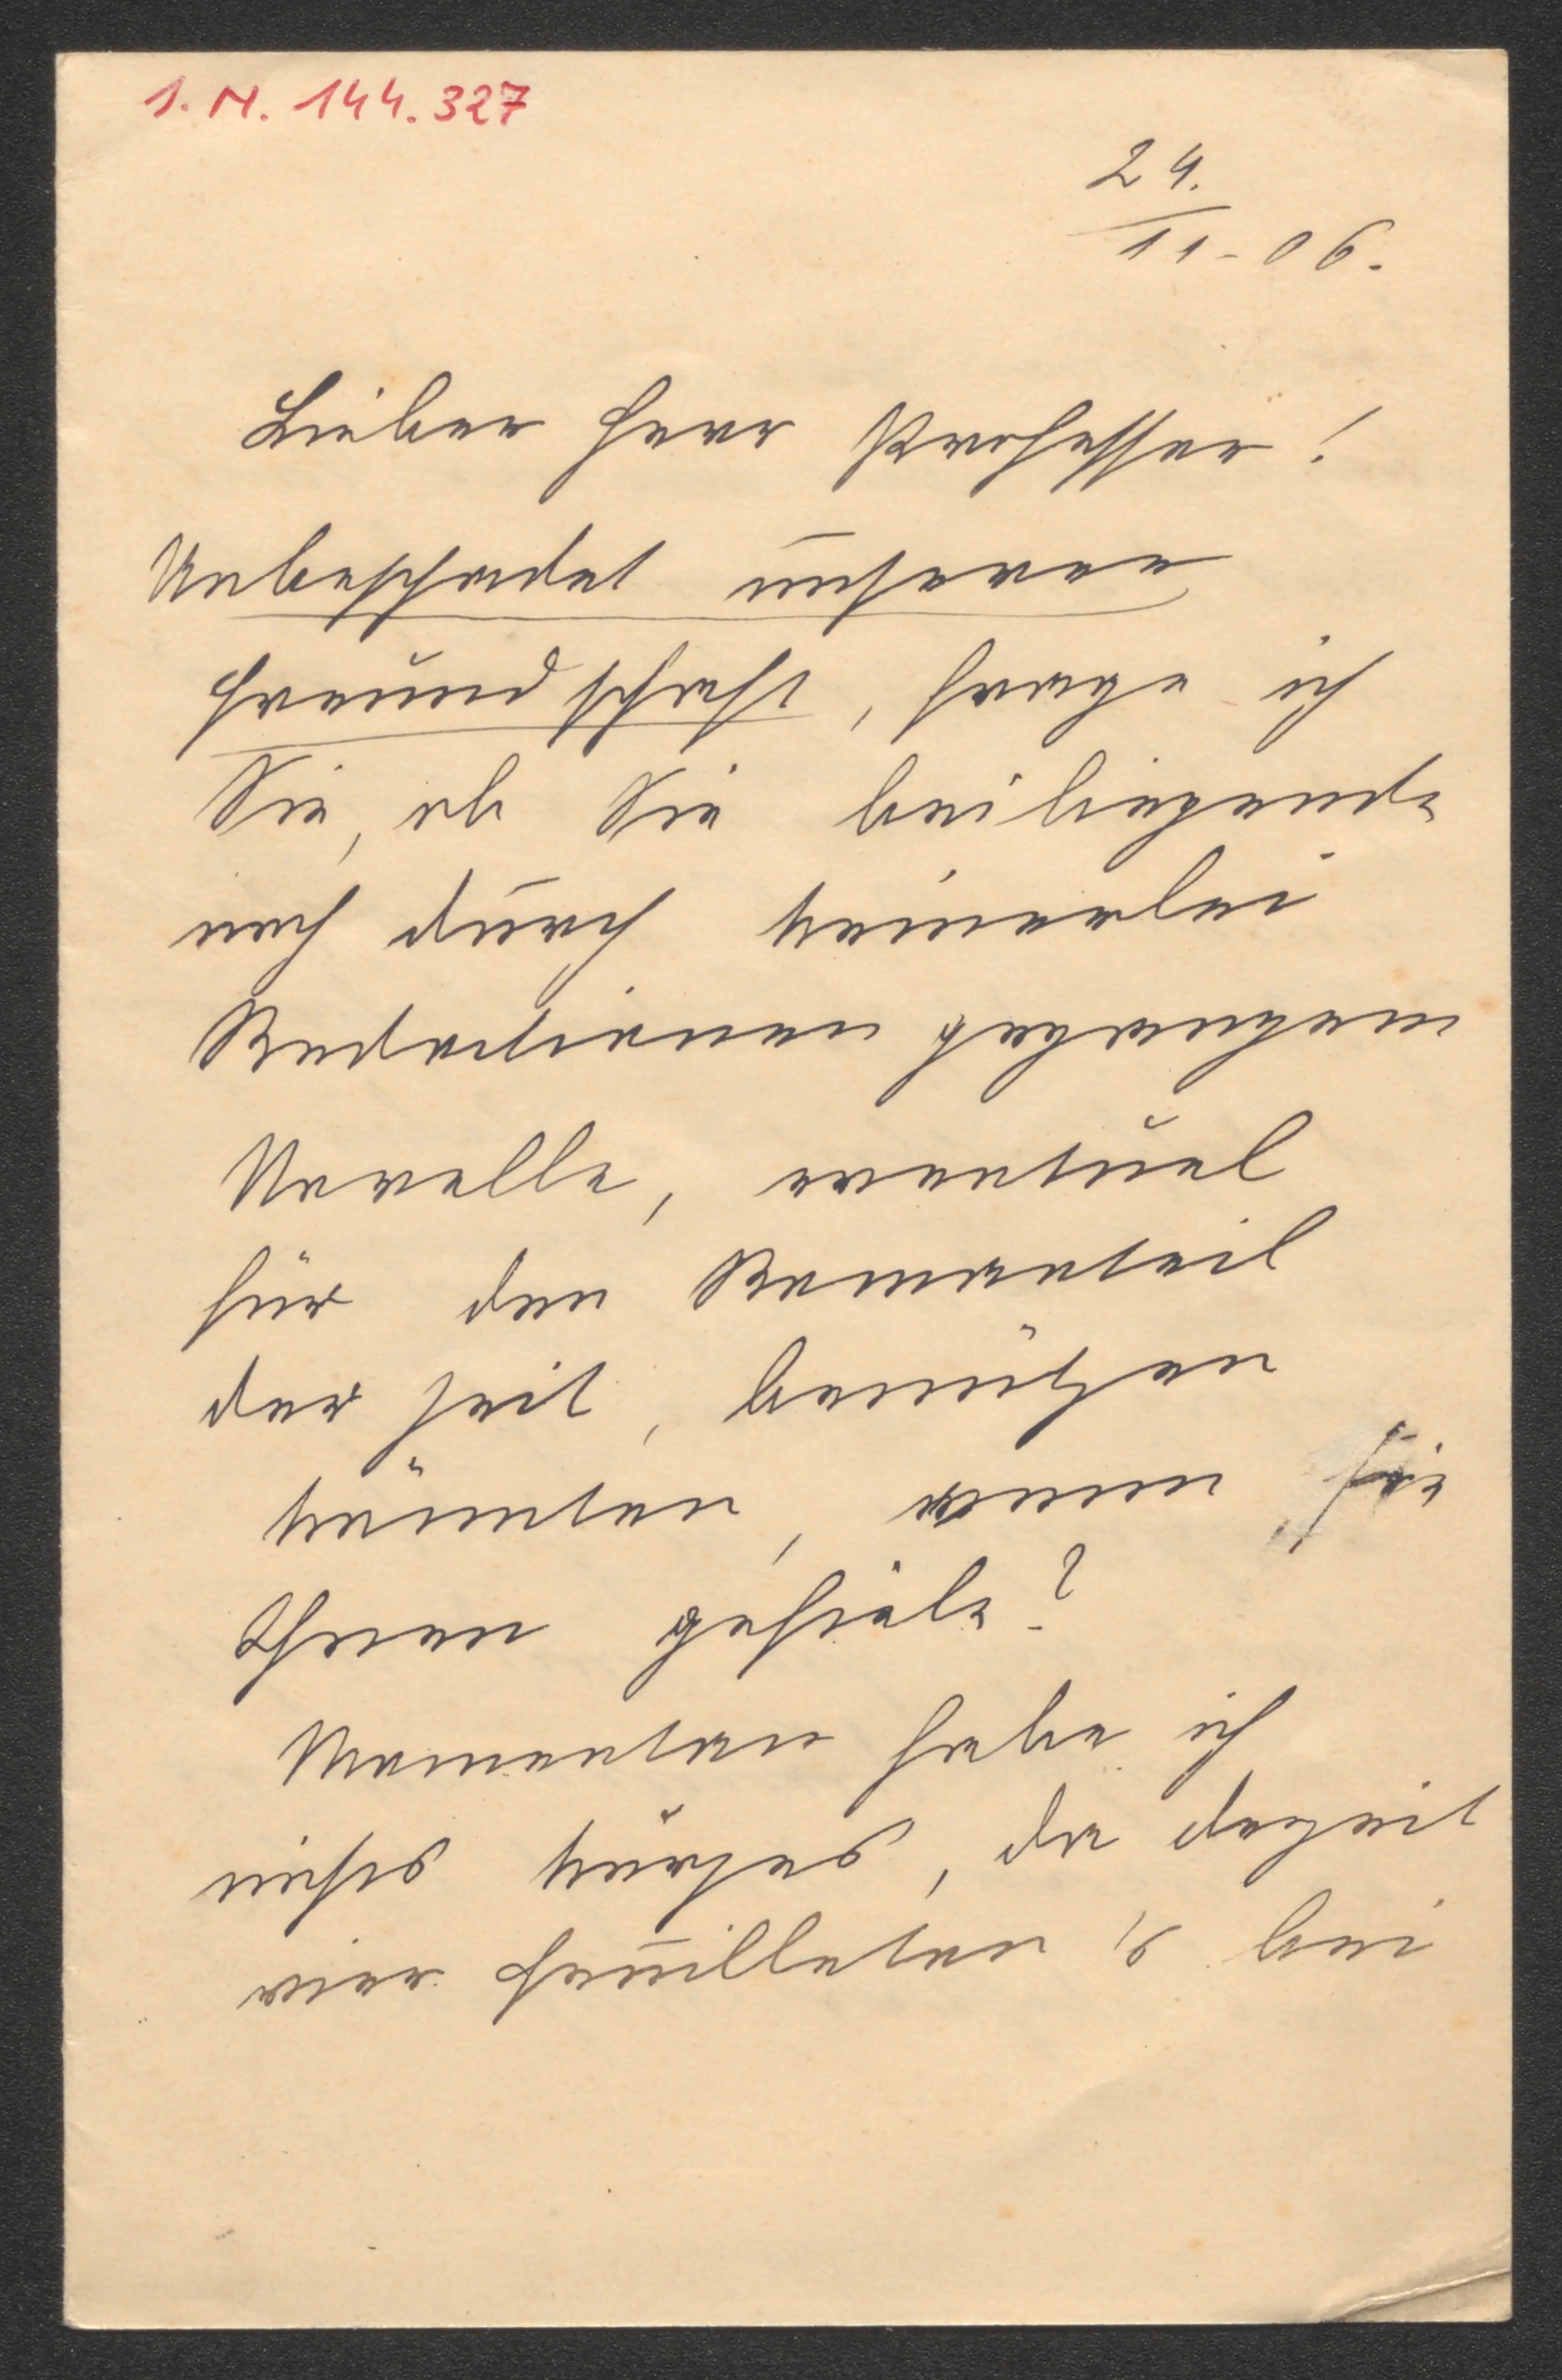 I.N. 144.327
24.
11-06.
Lieber Herr Professor!
Unbeschadet unserer
Freundschaft, frage ich
Sie, ob Sie beiliegende
noch durch keinerlei
Redactionen gegangene
Novelle, eventuel
für den Romanteil
der Zeit, benützen
könnten, wenn sie
Ihnen gefiele?
Momentan habe ich
nichts kurzes, da derzeit
vier Feuilleton's bei